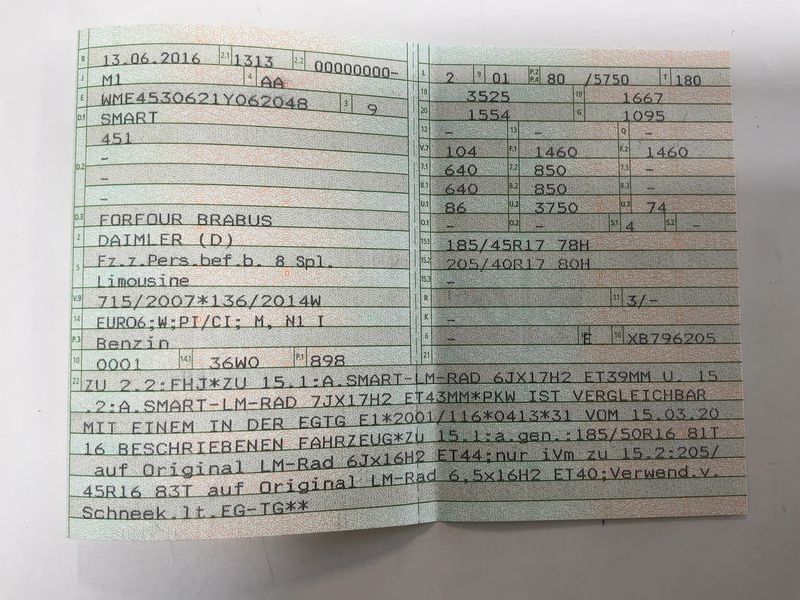 B 13.06.2016 2.1 1313 2.2 00000000-
J M1 4 AA
E WMF4530621Y062048 3 9
D.1 SMART
451
-
D.2 -
-
D.3 FORFOUR BRABUS
2 DAIMLER (D)
5 Fz.z.Pers.bef.b. 8 Spl.
Limousine
V.9 715/2007*136/2014W
14 EURO6;W;PI/CI; M, N1 I
P.3 Benzin
10 0001 14.1 36W0 P.1 898
L 2 9 01 P.2 P.4 80 /5750 T 180
18 3525 19 1667
20 1554 G 1095
12 - 13 - Q -
V.7 104 F.1 1460 F.2 1460
7.1 640 7.2 850 7.3 -
8.1 640 8.2 850 8.3 -
U.1 86 U.2 3750 U.3 74
O.1 - O.2 - S.1 4 S.2 -
15.1 185/45R17 78H
15.2 205/40R17 80H
15.3 -
R - 11 3/-
K -
6 - E 16 XB796205
21
22 ZU 2.2:FHJ*ZU 15.1:A.SMART-LM-RAD 6JX17H2 ET39MM U. 15
.2:A.SMART-LM-RAD 7JX17H2 ET43MM*PKW IST VERGLEICHBAR
MIT EINEM IN DER EGTG E1*2001/116*0413*31 VOM 15.03.20
16 BESCHRIEBENEN FAHRZEUG*ZU 15.1:a.gen.:185/50R16 81T
auf Original LM-Rad 6Jx16H2 ET44;nur iVm zu 15.2:205/
45R16 83T auf Original LM-Rad 6,5x16H2 ET40;Verwend.v.
Schneek.lt.EG-TG**